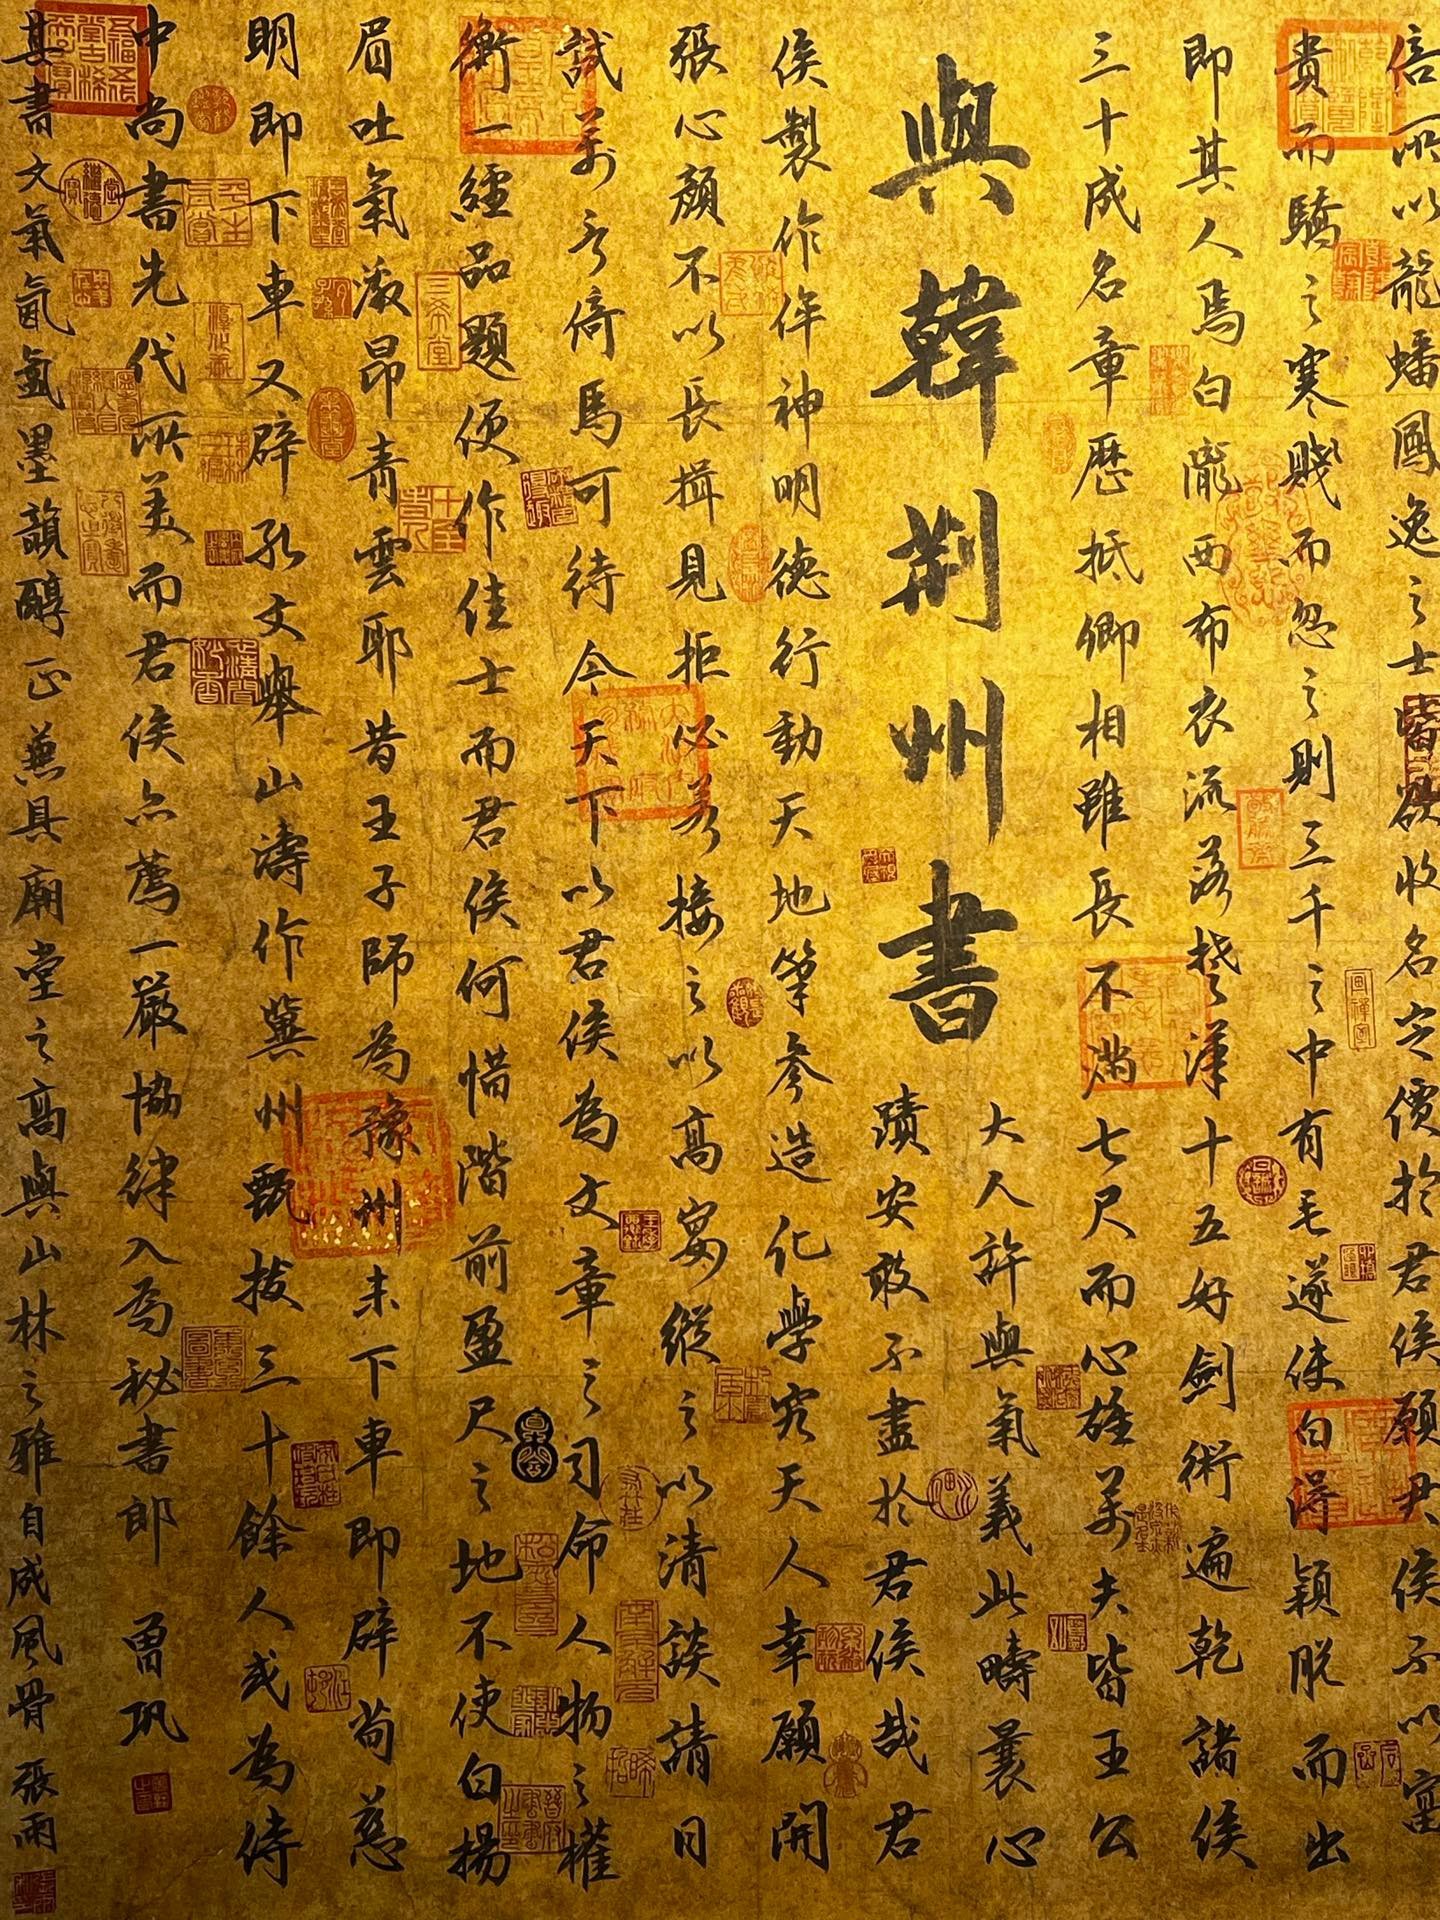 倍所以龍蟠鳳逸之士皆欲收名定價於君侯願君侯不以富
貴而驕之寒賤而忽之則三千之中有毛遂使白得穎脫而出
即其人焉白隴西布衣流落楚漢十五好劍術遍乾諸侯
三十成名章歷抵卿相雖長不滿七尺而心雄萬夫皆王公
與韓荊州書
大人許與氣義此疇曩心
蹟安敢不盡於君侯哉君
侯製作侔神明德行動天地筆參造化學究天人幸願開
張心顏不以長揖見拒必若接之以高宴縱之以清談請日
試萬言倚馬可待今天下以君侯為文章之司命人物之權
衡一經品題便作佳士而君侯何惜階前盈尺之地不使白揚
眉吐氣激昂青雲耶昔王子師為豫州未下車即辟荀慈
明即下車又辟孔文舉山濤作冀州甄拔三十餘人或為侍
中尚書先代所美而君侯亦薦一嚴協律入為秘書郎 曾鞏
其書文氣氤氳墨韻醇正兼具廟堂之高與山林之雅自成風骨 張雨
三希堂